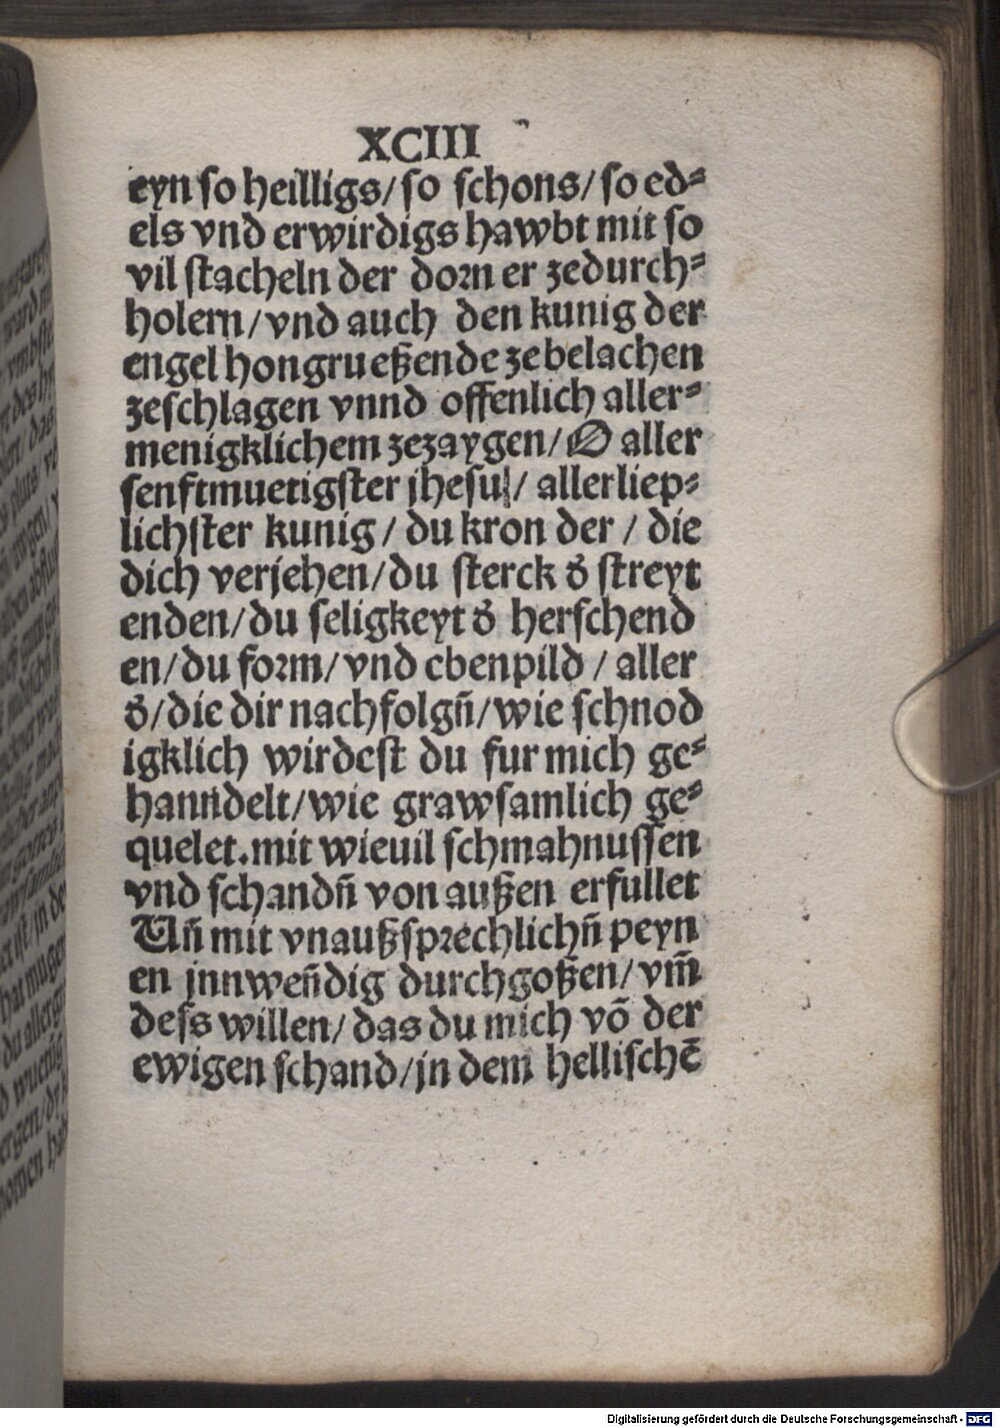 XCIII
eyn so heilligs/so schons/so ed⸗
els vnd erwirdigs hawbt mit so
vil stacheln der dorn er zedurch⸗
holern/vnd auch den kunig der
engel hongrueßende ze belachen
zeschlagen vnnd offenlich aller⸗
menigklichem zezaygen/O aller
senftmuetigster jhesu/ allerliep⸗
lichster kunig/du kron der/die
dich verjehen/du sterck dͤ streyt
enden/du seligkeyt dͤ herschend
en/du form/vnd ebenpild/aller
dͤ/die dir nachfolgn̄/wie schnod
igklich wirdest du fur mich ge⸗
hanndelt/wie grawsamlich ge⸗
quelet.mit wieuil schmahnussen
vnd schandn̄ von außen erfullet
Vn̄ mit vnaußsprechlichn̄ peyn
en jnnwen̄dig durchgoßen/vm̄
dess willen/das du mich võ der
ewigen schand/jn dem hellischē
Digitalisierung gefördert durch die Deutsche Forschungsgemeinschaft - DFG